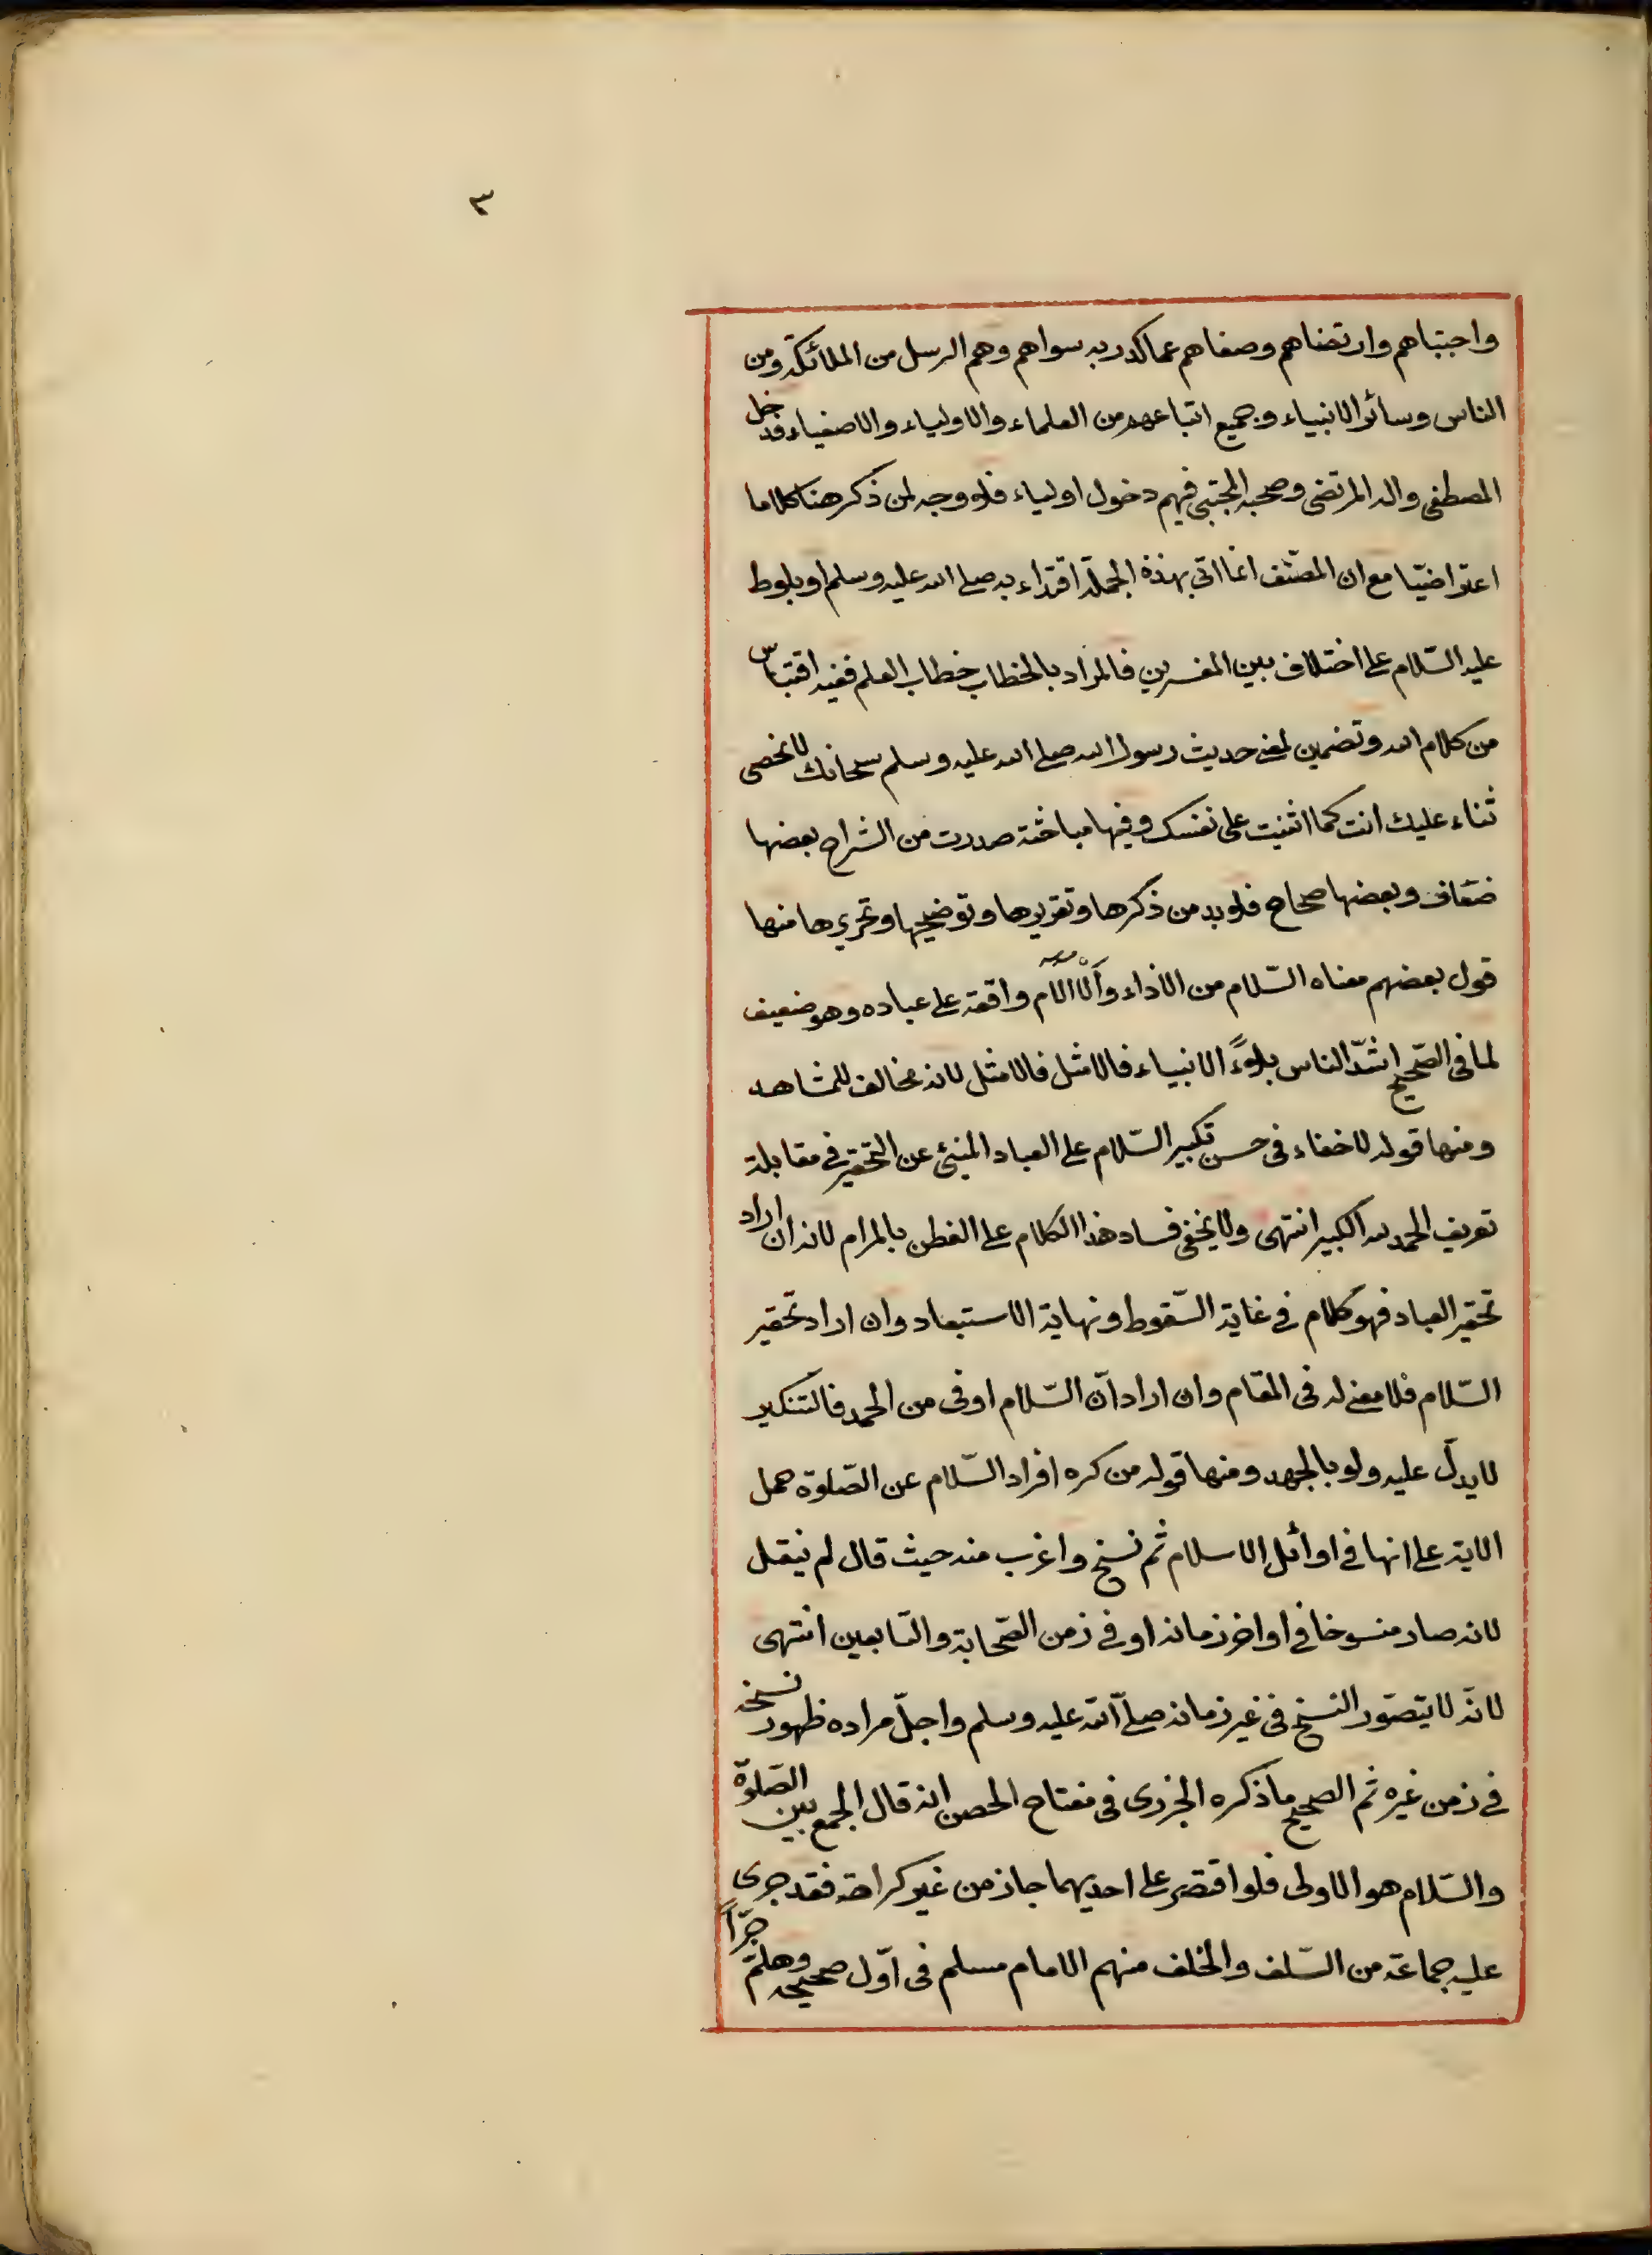 ٣
واجتباهم وارتضاهم وصفاهم عما كدر به سواهم وهم الرسل من الملائكة ومن
الناس وسائر الانبياء وجميع اتباعهم من العلماء والاولياء والاصفياء فدخل
المصطفى واله المرتضى وصحبه المجتبى فيهم دخول اوليا فلا وجه لمن ذكر هنا كلاما
اعتراضيّا مع ان المصنّف انما اتى بهذه الجملة اقتداء به صلى الله عليه وسلم او بلوط
عليه السّلام على اختلاف بين المفسرين فالمراد بالخطاب خطاب العلم ففيه اقتباس
من كلام الله وتضمين لمعنى حديث رسول الله صلى الله عليه وسلم سبحانك لا نحصى
ثناء عليك انت كما اثنيت على نفسك وفيها مباحثة صدرت من الشراح بعضها
ضعاف وبعضها صحاح فلا بد من ذكرها وتقريرها وتوضيحها وتحريرها منها
قول بعضهم معناه السّلام من الاذاء والالام واقعة على عباده وهو ضعيف
لما فى الصّحيح اشدّ الناس بلاءً الانبياء فالامثل فالامثل لانه مخالف للمشاهد
ومنها قوله لا خفاء فى حسن تكبير السّلام على العباد المنبئ عن التحقير فى مقابلة
تعريف الحمد لله الكبير انتهى ولا يخفى فساد هذا الكلام على الفطن بالمرام لانه ان اراد
تحقير العباد فهو كلام فى غاية السّقوط ونهاية الاستبعاد وان اراد تحقير
السّلام فلا معنى له فى المقام وان اراد انّ السّلام اوفى من الحمد فالتنكير
لا يدلّ عليه ولو بالجهد ومنها قوله من كره افراد السّلام عن الصّلوة حمل
الاية على انها فى اوائل الاسلام ثم نسخ واغرب منه حيث قال لم ينقل
لانه صار منسوخا فى اواخر زمانه او فى زمن الصّحابة والتّابعين انتهى
لانّه لا يتصوّر النسخ فى غير زمانه صلى الله عليه وسلم واجلّ مراده ظهور نسخه
فى زمن غيره ثم الصحيح ما ذكره الجزرى فى مفتاح الحصن انه قال الجمع بين الصّلوة
والسّلام هو الاولى فلو اقتصر على احديهما جاز من غير كراهة فقد جرى
عليه جماعة من السّلف والخلف منهم الامام مسلم فى اوّل صحيحه وهلمّ جرّاً